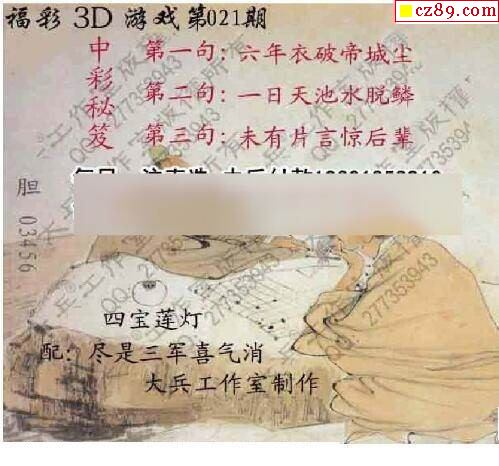 福彩3D游戏第021期
cz89.com
中彩秘笈
第一句:六年衣破帝城尘
第二句:一日天池水脱鳞
第三句:未有片言惊后辈
胆 03456
四宝莲灯
配:尽是三军喜气消
大兵工作室制作
大兵工作室版权所有
QQ:277353943